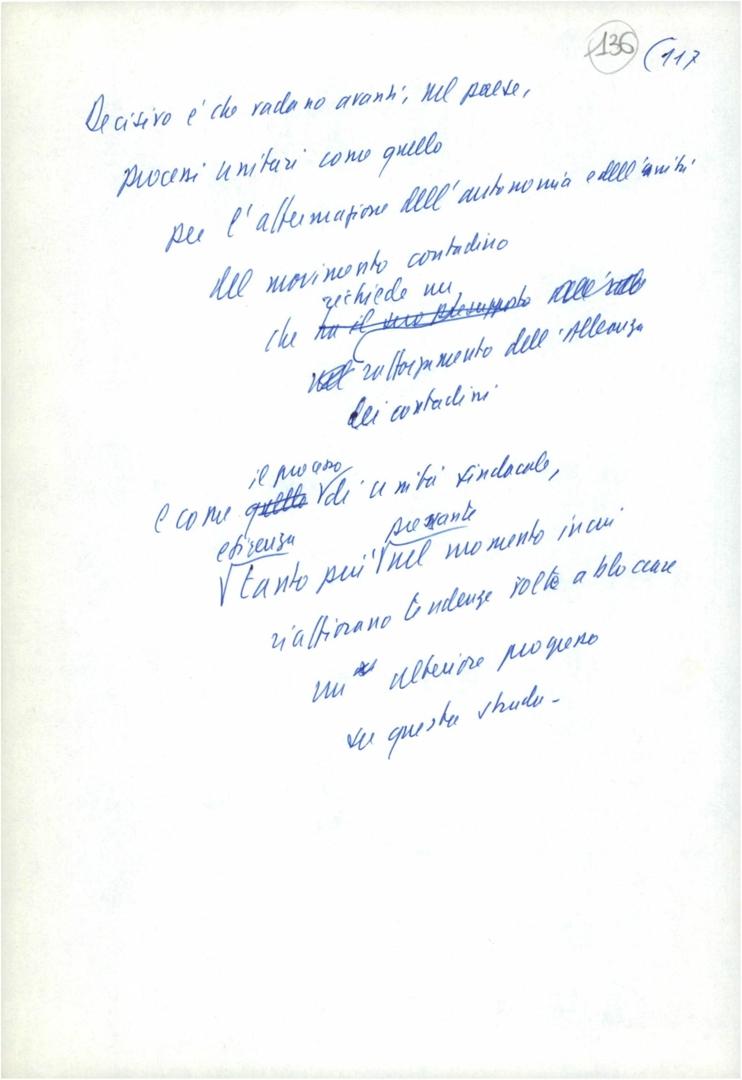 136 (117
Decisivo è che vadano avanti, nel paese,
processi unitari come quello
per l'affermazione dell'autonomia e dell'unità
del movimento contadino
richiede un
che ha il suo presupposto
nel rafforzamento dell'Alleanza
dei contadini
il processo
e come quello di unità sindacale,
esigenza pressante
tanto più nel momento in cui
riaffiorano tendenze volte a bloccare
un ulteriore progresso
su questa strada-